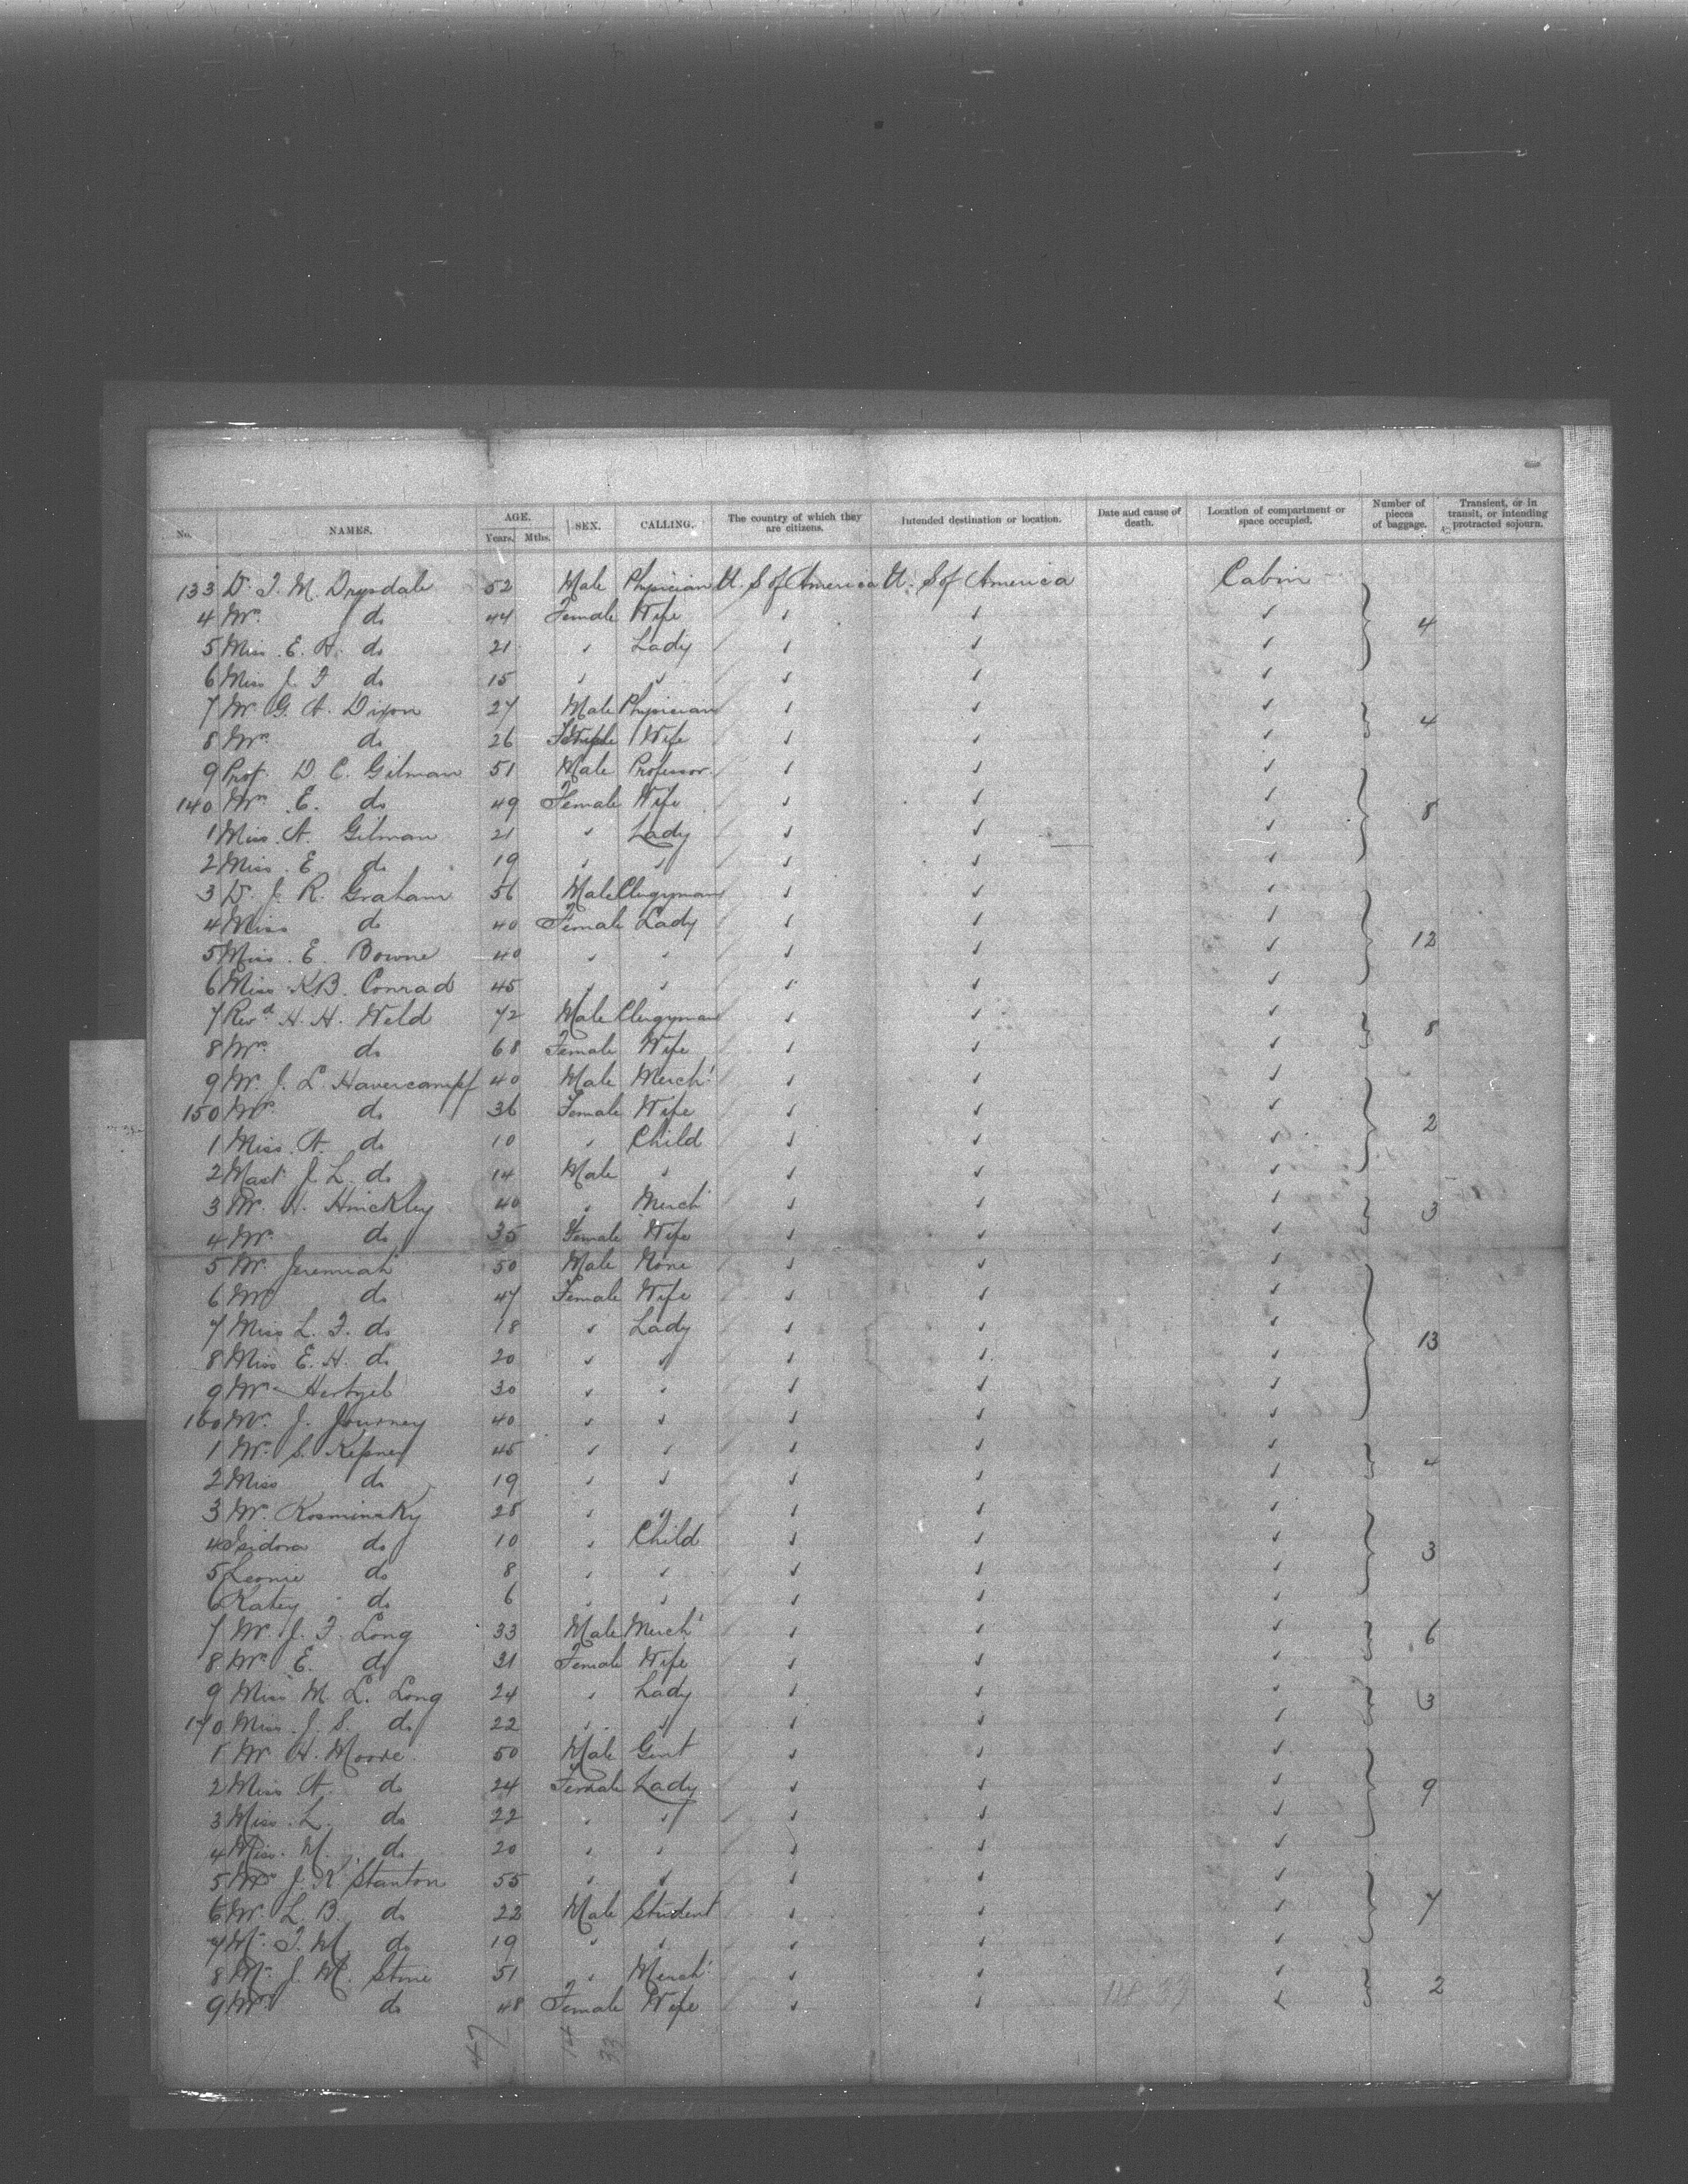 No. NAMES. AGE. Years. Mths. SEX. CALLING. The country of which they are citizens. Intended destination or location. Date and cause of death. Location of compartment or space occupied. Number of pieces of baggage. Transient, or in transit, or intending protracted sojourn.
133 Dr. T. M. Drysdale 52 Male Physician U. S of America U. S of America Cabin
4 Mrs do 44 Female Wife ✓ ✓ ✓ 4
5 Miss E. H. do 21 ✓ Lady ✓ ✓ ✓
6 Miss J. T do 15 ✓ ✓ ✓ ✓ ✓
7 Mr G. A. Dixon 27 Male Physician ✓ ✓ ✓ 4
8 Mrs do 26 Wife ✓ ✓ ✓
9 Prof. D. C. Gilman 51 Male Professor ✓ ✓ ✓
140 Mrs E. do 49 Female Wife ✓ ✓ ✓ 8
1 Miss A. Gilman 21 ✓ Lady ✓ ✓ ✓
2 Miss E do 19 ✓ ✓ ✓ ✓ ✓
3 Dr. J. R. Graham 56 Male Clergyman ✓ ✓ ✓
4 Miss do 40 Female Lady ✓ ✓ ✓ 12
5 Miss E. Bowne 40 ✓ ✓ ✓ ✓ ✓
6 Miss K B. Conrad 45 ✓ ✓ ✓ ✓ ✓
7 Revd H. H. Weld 72 Male Clergyman ✓ ✓ ✓ 8
8 Mrs do 68 Female Wife ✓ ✓ ✓
9 Mr. J. L. Havercampf 40 Male Mercht ✓ ✓ ✓
150 Mrs do 36 Female Wife ✓ ✓ ✓ 2
1 Miss A. do 10 ✓ Child ✓ ✓ ✓
2 Mast J. L. do 14 Male ✓ ✓ ✓ ✓
3 Mr. H. Hinckley 40 ✓ Merch ✓ ✓ ✓ 3
4 Mrs do 35 Female Wife ✓ ✓ ✓
5 Mr. Jeremiah 50 Male None ✓ ✓ ✓
6 Mrs do 47 Female Wife ✓ ✓ ✓
7 Miss L. F. do 18 ✓ Lady ✓ ✓ ✓ 13
8 Miss E. H. do 20 ✓ ✓ ✓ ✓ ✓
9 Mrs 30 ✓ ✓ ✓ ✓ ✓
160 Mrs J. Journey 40 ✓ ✓ ✓ ✓ ✓
1 Mrs S. 45 ✓ ✓ ✓ ✓ ✓ 4
2 Miss do 19 ✓ ✓ ✓ ✓ ✓
3 Mrs Kosminsky 28 ✓ ✓ ✓ ✓ ✓
4 Isidora do 10 ✓ Child ✓ ✓ ✓ 3
5 Leonie do 8 ✓ ✓ ✓ ✓ ✓
6 Katey do 6 ✓ ✓ ✓ ✓ ✓
7 Mr. J. F. Long 33 Male Mercht ✓ ✓ ✓ 6
8 Mrs E. do 31 Female Wife ✓ ✓ ✓
9 Miss M. L. Long 24 ✓ Lady ✓ ✓ ✓ 3
170 Miss J. S. do 22 ✓ ✓ ✓ ✓ ✓
1 Mr H. Moore 50 Male Gent ✓ ✓ ✓
2 Miss A. do 24 Female Lady ✓ ✓ ✓ 9
3 Miss L. do 22 ✓ ✓ ✓ ✓ ✓
4 Miss M. do 20 ✓ ✓ ✓ ✓ ✓
5 Mrs J. K Stanton 55 ✓ ✓ ✓ ✓ ✓
6 Mr L. B. do 22 Male Student ✓ ✓ ✓ 7
7 Mr. T. M. do 19 ✓ ✓ ✓ ✓ ✓
8 Mr J. M. Stine 51 ✓ Mercht ✓ ✓ ✓ 2
9 Mrs do 48 Female Wife ✓ ✓ ✓
47 14 33